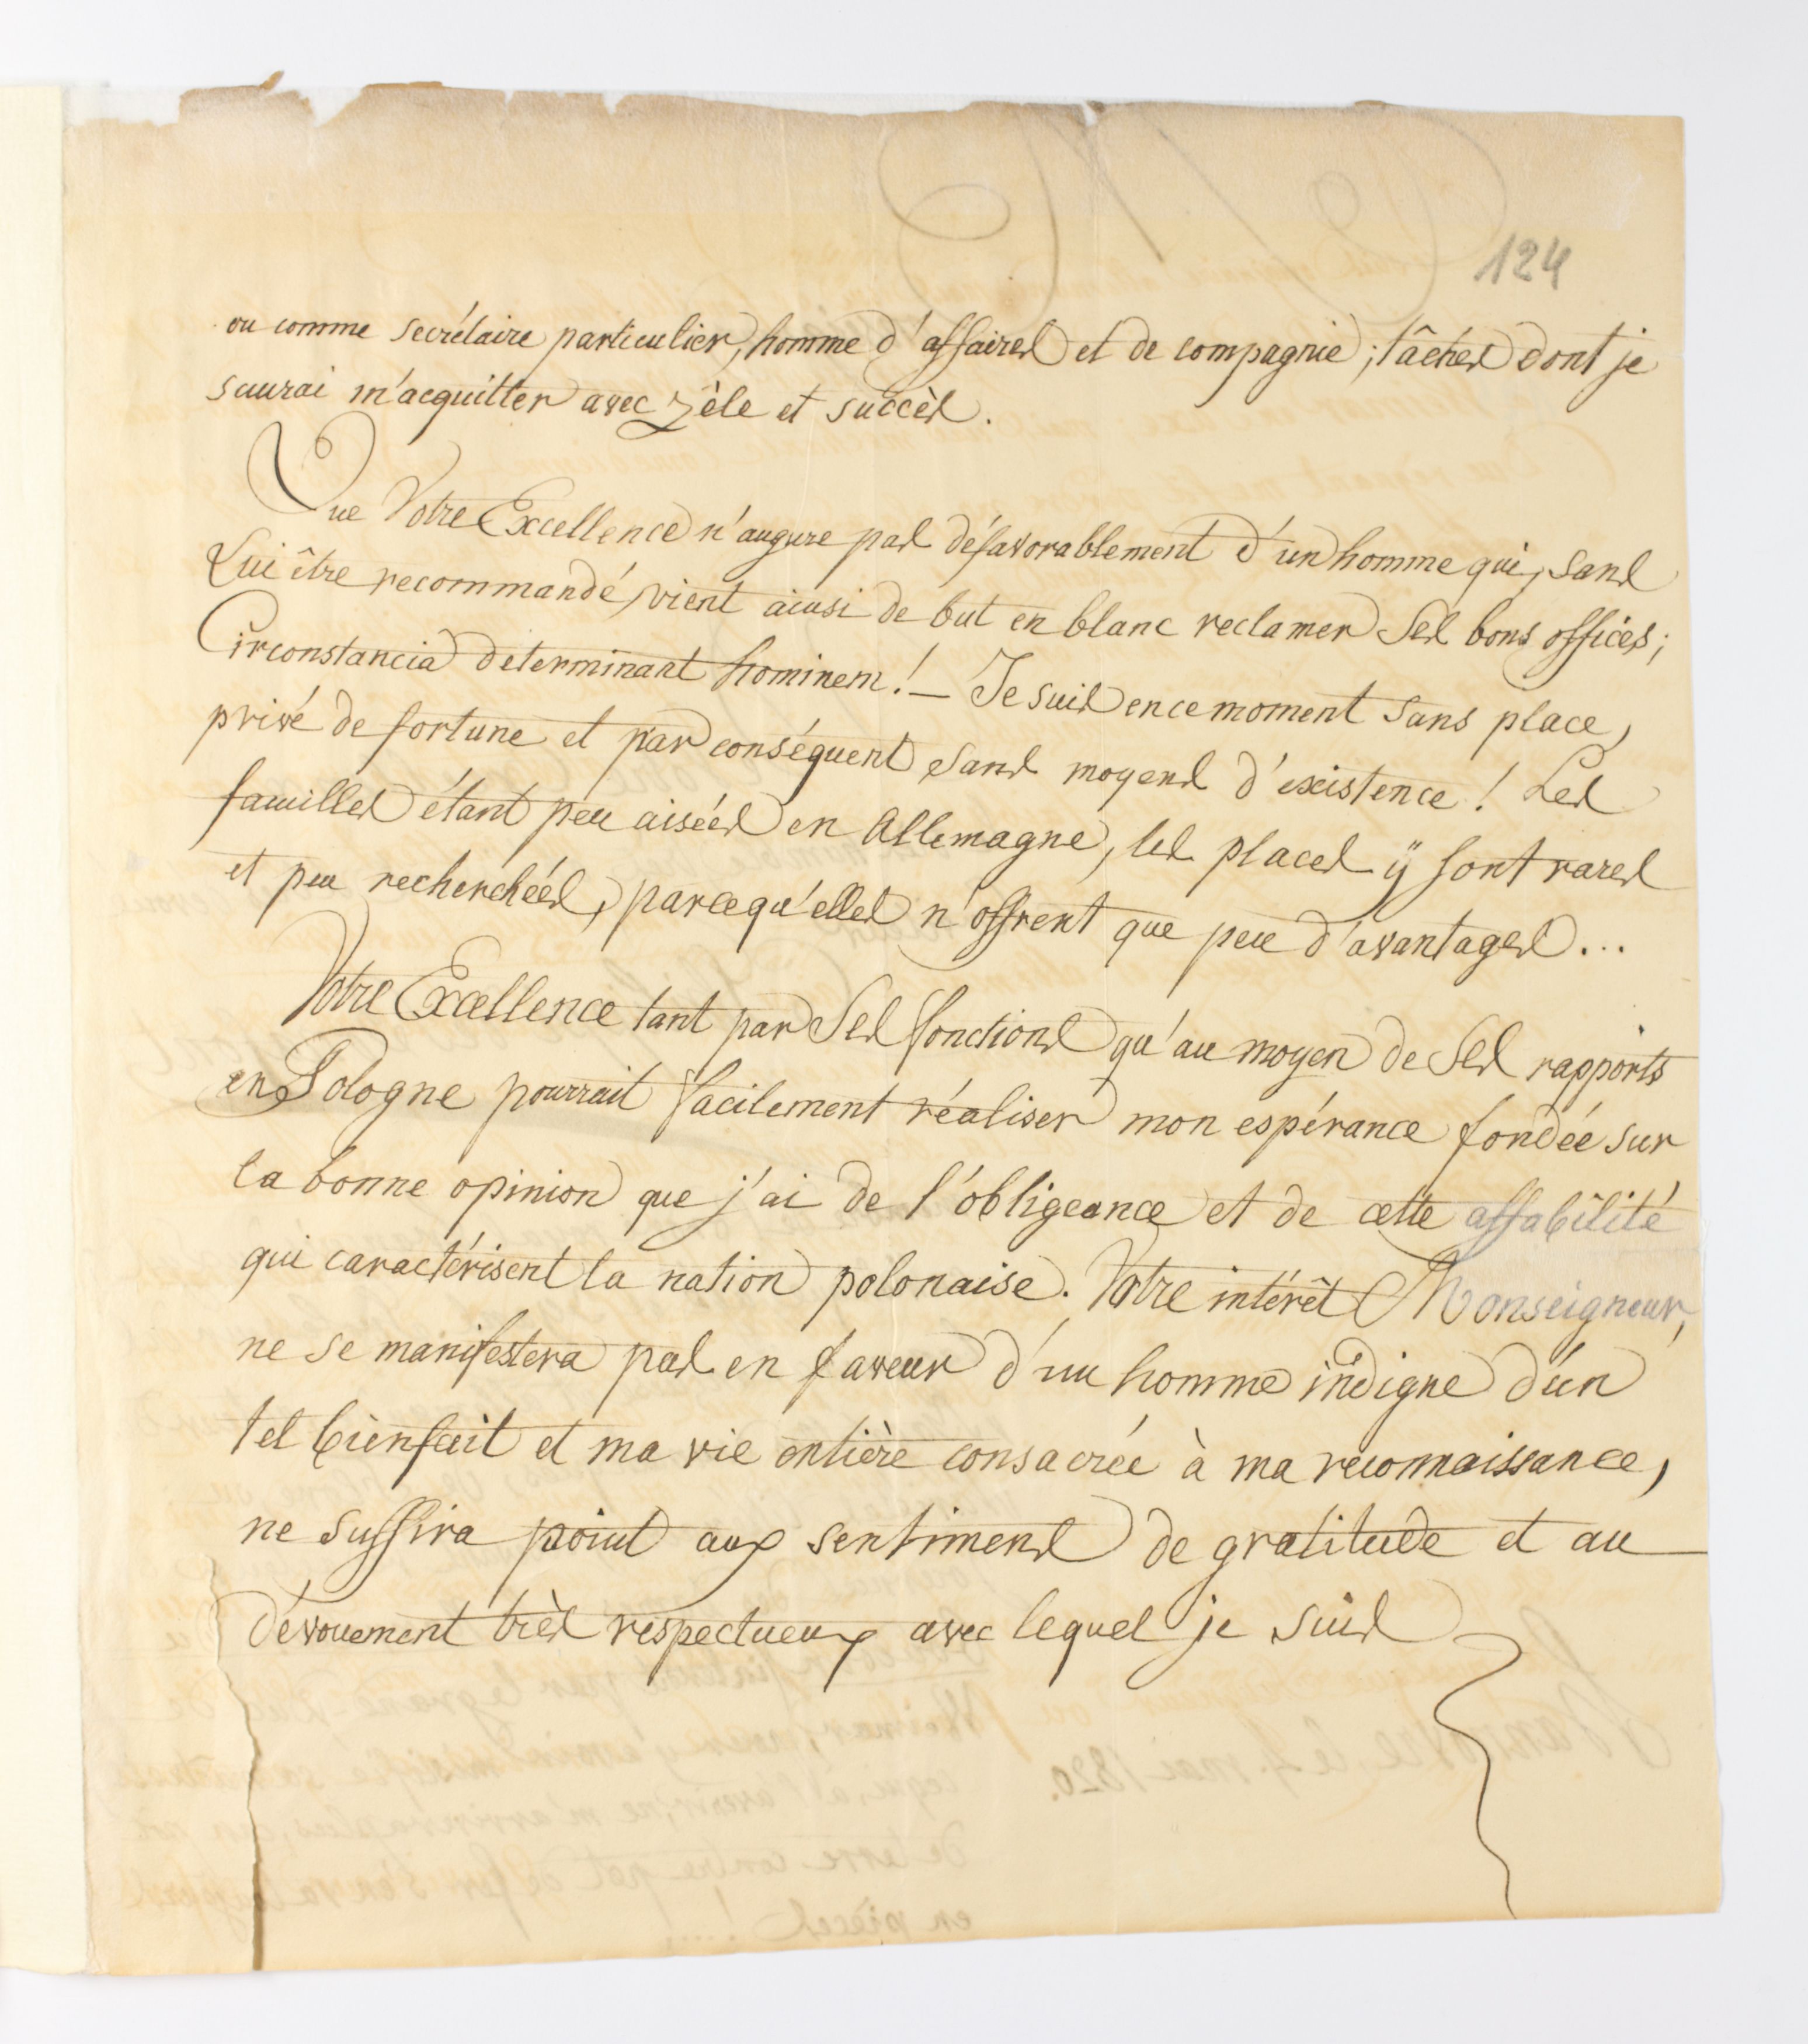 124
ou comme secrétaire particulier, homme d'affaires et de compagnie; tâches dont je
saurai m'acquitter avec zèle et succès.
Que Votre Excellence n'augure pas défavorablement d'un homme qui, sans
Lui être recommandé, vient ainsi de but en blanc reclamer Ses bons offices;
Circonstancia determinant hominem! — Je suis en ce moment sans place,
privé de fortune et par conséquent sans moyens d'existence! Les
familles étant peu aisées en Allemagne, les places ÿ sont rares
et peu recherchées, parcequ'elles n'offrent que peu d'avantages...
Votre Excellence tant par Ses fonctions qu'au moyen de Ses rapports
en Pologne pourrait facilement réaliser mon espérance fondée sur
la bonne opinion que j'ai de l'obligeance et de cette affabilité
qui caractérisent la nation polonaise. Votre intérêt Monseigneur,
ne se manifestera pas en faveur d'un homme indigne d'un
tel bienfait et ma vie entière consacrée à ma reconnaissance,
ne suffira point aux sentimens de gratitude et au
dévouement très respectueux avec lequel je suis